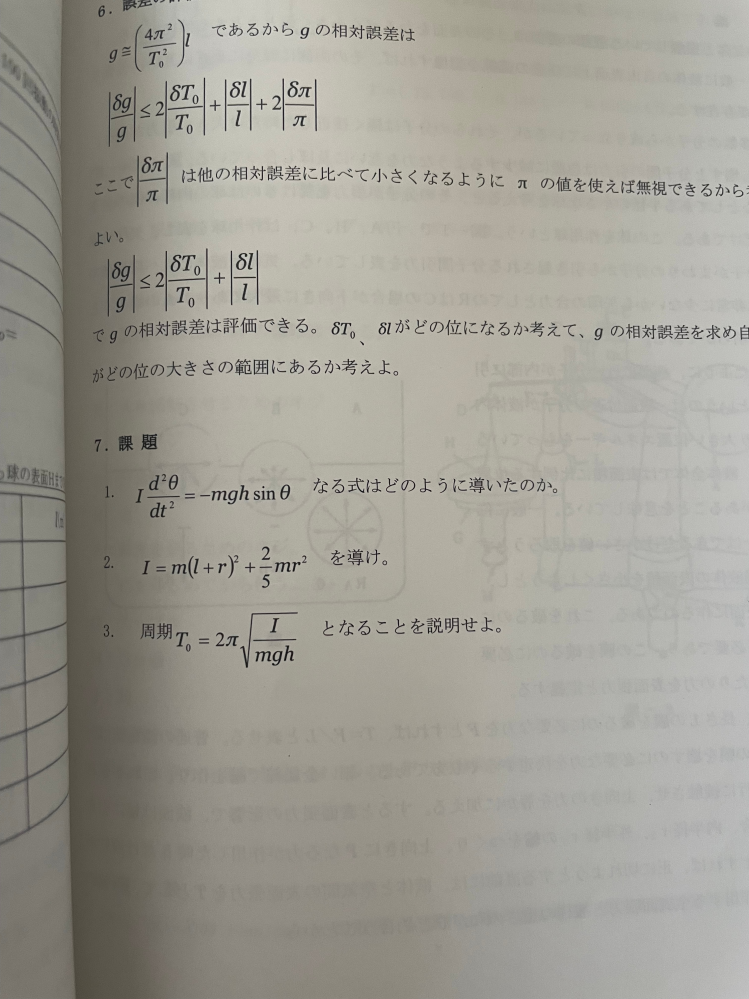 6. 誤差の
g≅(4π²/T₀²)l であるから g の相対誤差は
|δg/g|≤2|δT₀/T₀|+|δl/l|+2|δπ/π|
ここで|δπ/π| は他の相対誤差に比べて小さくなるように π の値を使えば無視できるから
よい。
|δg/g|≤2|δT₀/T₀|+|δl/l|
で g の相対誤差は評価できる。δT₀、δlがどの位になるか考えて、g の相対誤差を求め
がどの位の大きさの範囲にあるか考えよ。
7. 課 題
1. I d²θ/dt² = −mgh sin θ なる式はどのように導いたのか。
2. I = m(l+r)² + 2/5 mr² を導け。
3. 周期T₀ = 2π√(I/mgh) となることを説明せよ。
球の表面Hまで